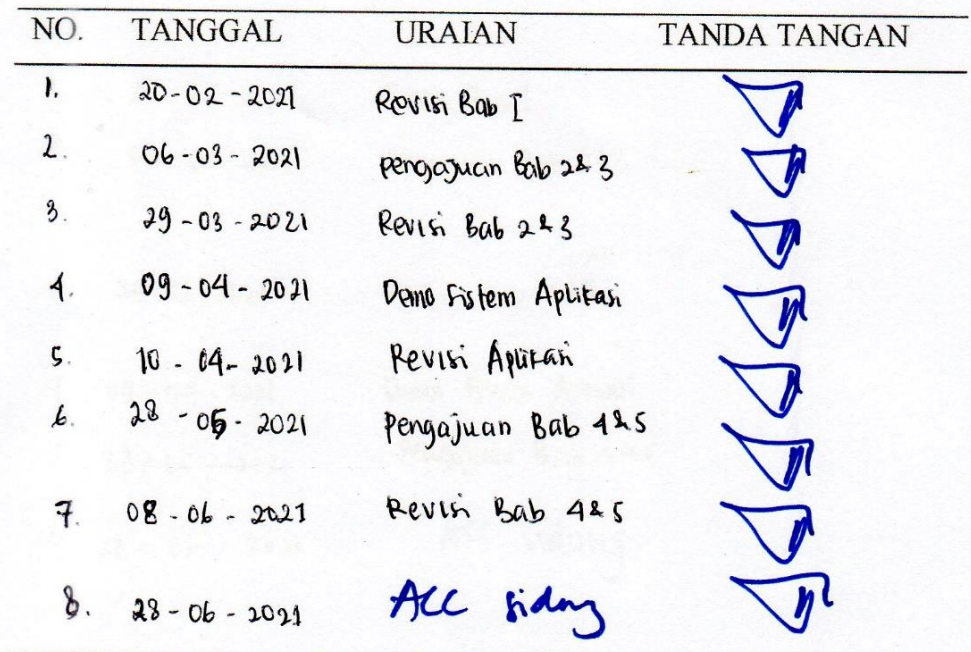 NO. TANGGAL URAIAN TANDA TANGAN
1. 20-02-2021 Revisi Bab I
2. 06-03-2021 pengajuan Bab 2&3
3. 29-03-2021 Revisi Bab 2&3
4. 09-04-2021 Demo Sistem Aplikasi
5. 10-04-2021 Revisi Aplikasi
6. 28-05-2021 Pengajuan Bab 4&5
7. 08-06-2021 Revisi Bab 4&5
8. 28-06-2021 ACC sidang